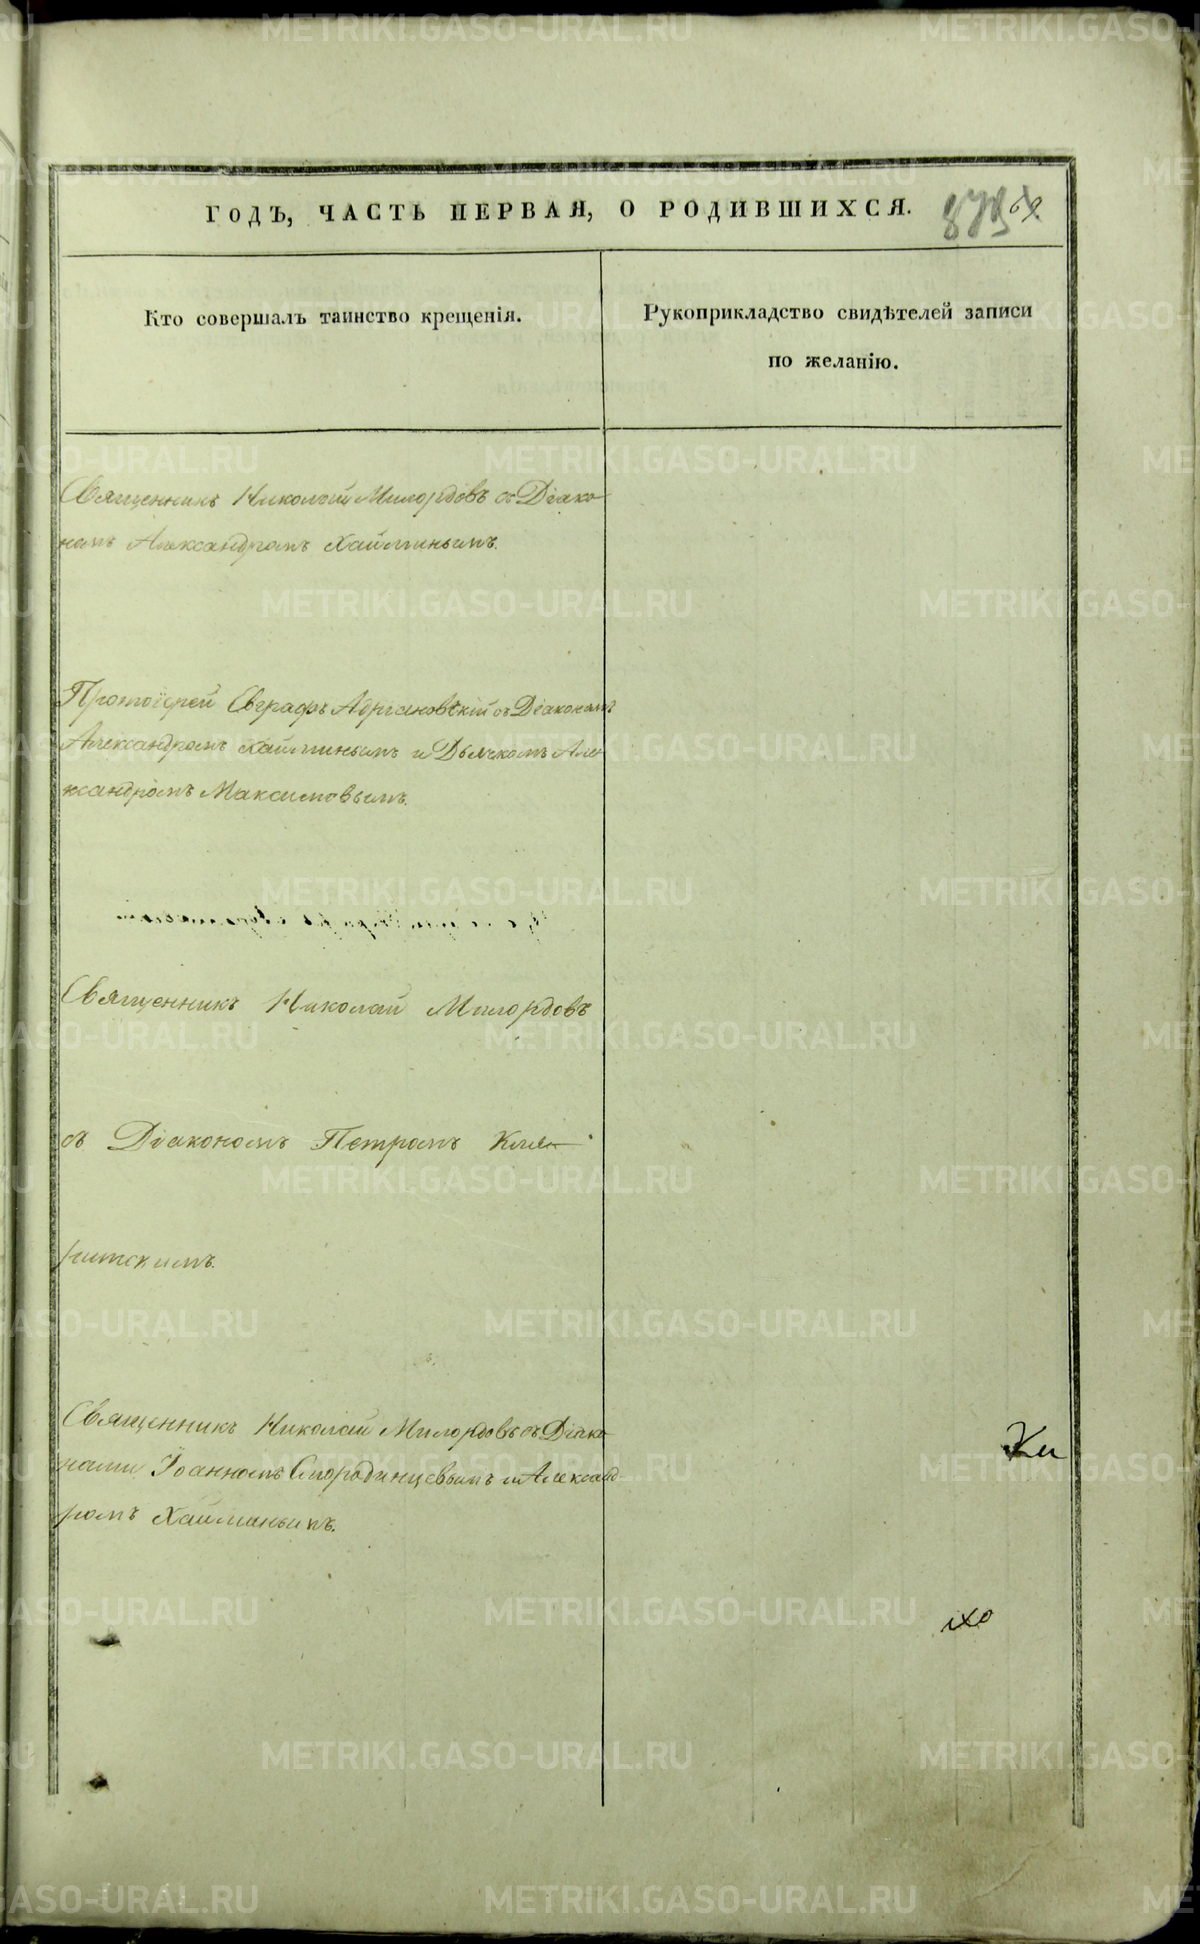 ГОДЪ, ЧАСТЬ ПЕРВАЯ, О РОДИВШИХСЯ.
879
Кто совершалъ таинство крещенія.
Рукоприкладство свидѣтелей записи
по желанію.
Священникъ Николай Милордовъ съ Діако-
номъ Александромъ Хайминымъ.
Протоіерей Евграфъ Адріановскій съ Діакономъ
Александромъ Хайминымъ и Дьячкомъ Але-
ксандромъ Максимовымъ.
Священникъ Николай Милордовъ
съ Діакономъ Петромъ
Священникъ Николай Милордовъ съ Діако-
нами Іоанномъ Смородинцевымъ и Александ-
ромъ Хайминымъ.
Ки
METRIKI.GASO-URAL.RU